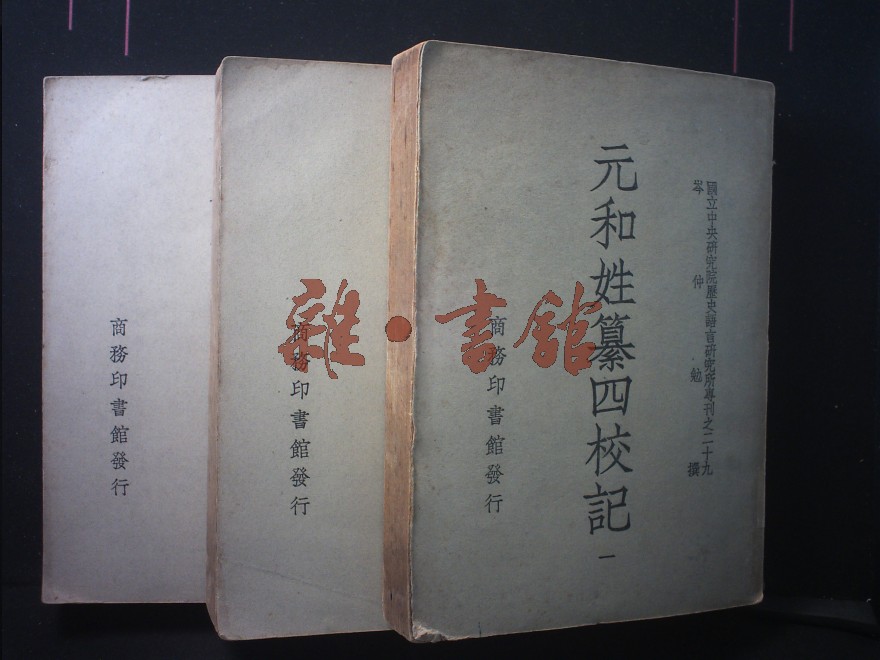 國立中央研究院歷史語言研究所專刊之二十九
岑仲勉撰
元和姓纂四校記
一
商務印書館發行
商務印書館發行
商務印書館發行
雜·書館